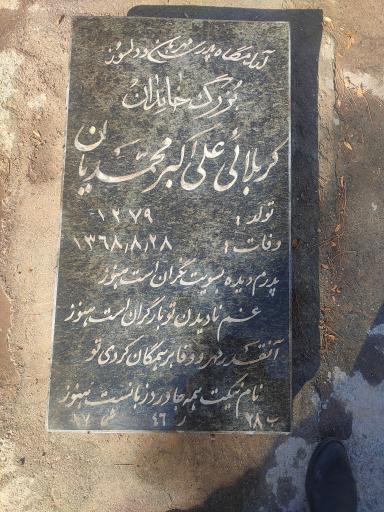 آرامگاه پدری مهربان و دلسوز
بزرگ خاندان
کربلائی علی اکبر محمدیان
تولد : ۱۲۷۹
وفات : ۱۳۶۸/۸/۲۸
پدرم دیده بسویت نگران است هنوز
غم نادیدن تو بار گران است هنوز
آنقدر مهر و وفا بر همگان کردی تو
نام نیکت همه جا ورد زبانست هنوز